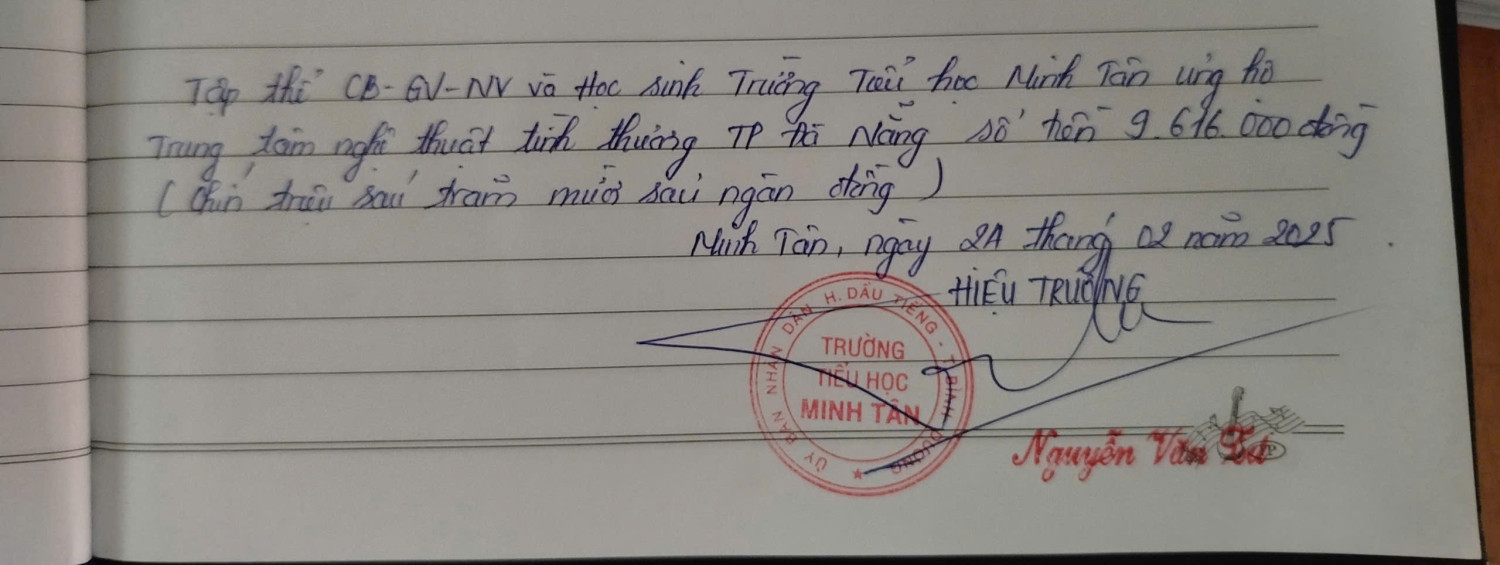 Tập thể CB-GV-NV và Học sinh Trường Tiểu học Minh Tân ủng hộ
Trung tâm nghệ thuật tình thương TP Đà Nẵng số tiền 9.616.000 đồng
(Chín triệu sáu trăm mười sáu ngàn đồng)
Minh Tân, ngày 24 tháng 02 năm 2025
HIỆU TRƯỞNG
ỦY BAN NHÂN DÂN H. DẦU TIẾNG - T. BÌNH DƯƠNG
TRƯỜNG
TIỂU HỌC
MINH TÂN
Nguyễn Văn